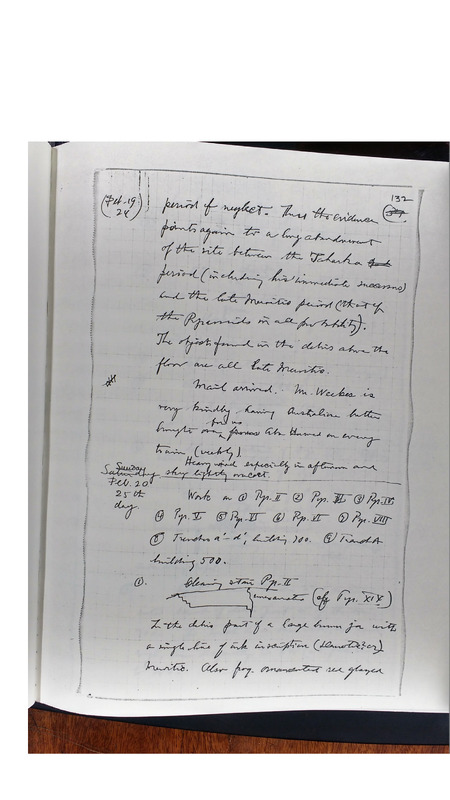 132
(Feb. 19
24)
period of neglect. Thus the evidence
points again to a long abandonment
of the site between the Taharka
period (including his immediate successors)
and the late Meroitic period (that of
the Pyramids in all probability).
The objects found in the debris above the
floor are all late Meroitic.
Mail arrived. Mr. Weekes is
very kindly having Australian butter
brought for us from Abu Hamed on every
train (weekly).
Heavy wind especially in afternoon and
sky lightly overcast.
Sunday
Saturday
Feb. 20
25th
day.
Work on ① Pyr. II ② Pyr. III ③ Pyr. IV
④ Pyr. V ⑤ Pyr. VI ⑥ Pyr. VII ⑦ Pyr. VIII
⑧ Trenches a'-d', building 700. ⑨ Trench A
building 500.
①. Clearing stair Pyr. II
unexcavated (cf Pyr. XIX)
In the debris part of a large brown jar with
a single line of ink inscription (demotic)
Meroitic. Also frag. ornamented red glazed